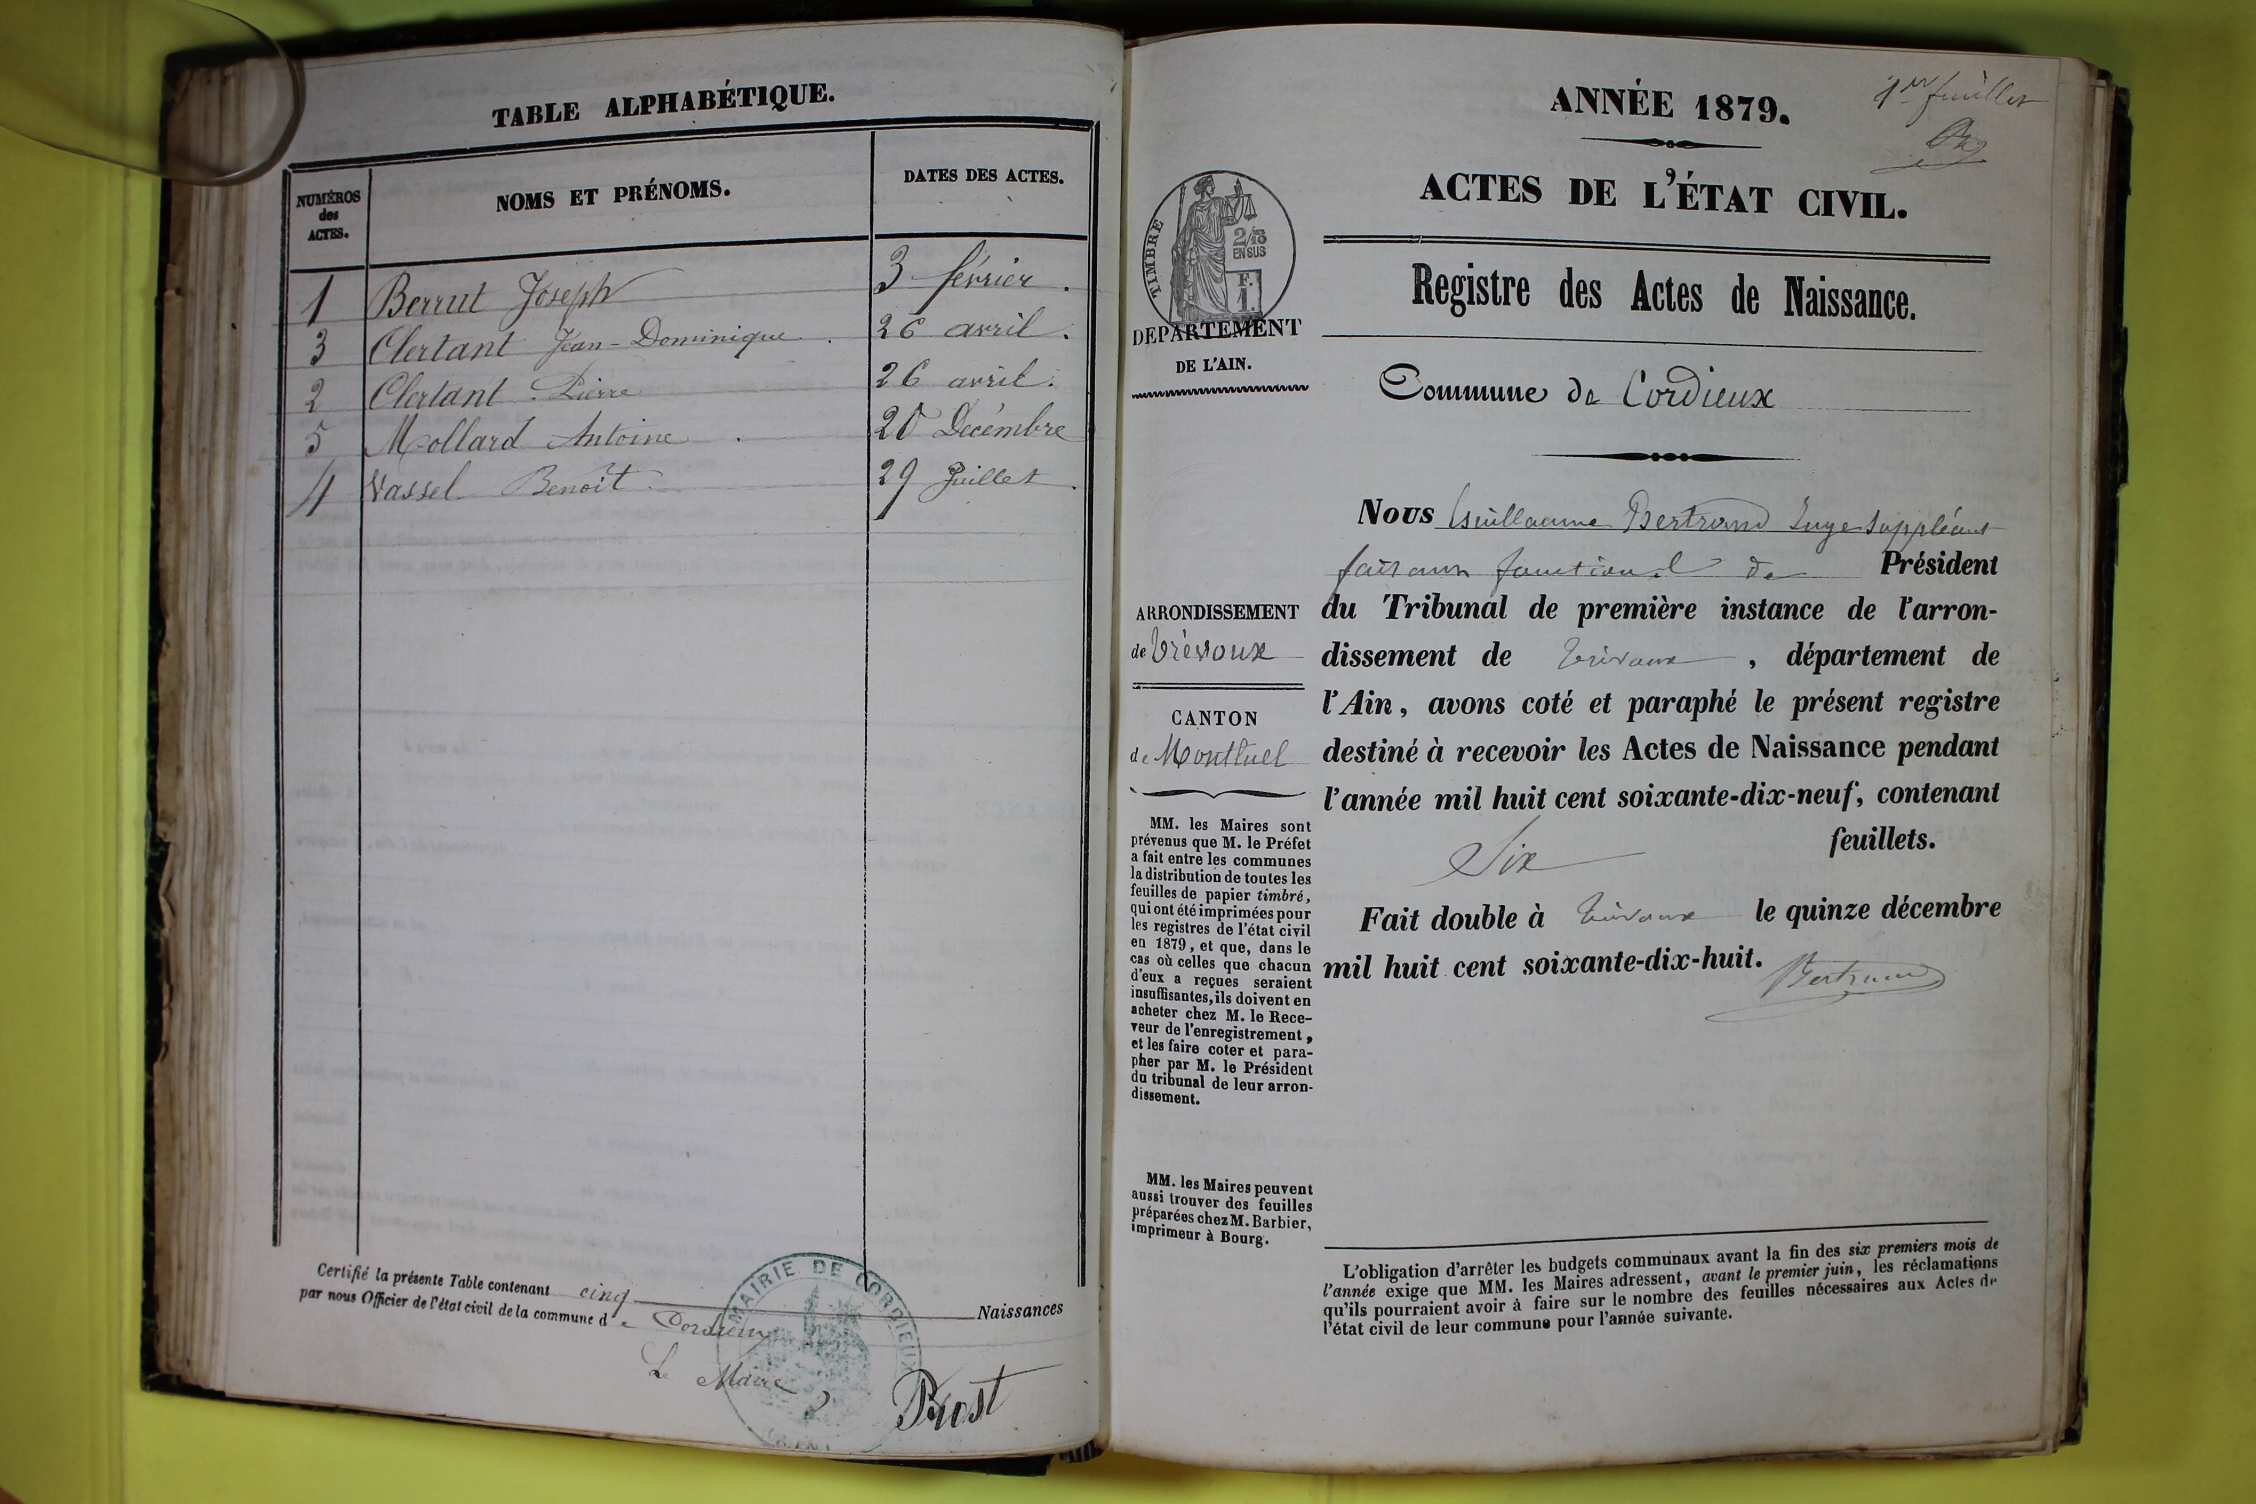 TABLE ALPHABÉTIQUE.
NUMÉROS
des
ACTES.
NOMS ET PRÉNOMS.
DATES DES ACTES.
1 Berrut Joseph 3 février.
3 Clertant Jean-Dominique. 26 avril.
2 Clertant Pierre 26 avril.
5 Mollard Antoine. Décembre
4 Vassel Benoît. 29 Juillet.
Certifié la présente Table contenant cinq Naissances
par nous Officier de l'état civil de la commune de Cordieux
Le Maire
Prost
MAIRIE DE CORDIEUX
ANNÉE 1879.
1er feuillet
ACTES DE L'ÉTAT CIVIL.
TIMBRE
2/10
EN SUS
F.
1.
Registre des Actes de Naissance.
DEPARTEMENT
DE L'AIN.
Commune de Cordieux
Nous Guillaume Bertrand Juge Suppléant
faisant fonctions de Président
du Tribunal de première instance de l'arron-
dissement de Trévoux, département de
l'Ain, avons coté et paraphé le présent registre
destiné à recevoir les Actes de Naissance pendant
l'année mil huit cent soixante-dix-neuf, contenant
Six feuillets.
Fait double à Trévoux le quinze décembre
mil huit cent soixante-dix-huit.
Bertrand
ARRONDISSEMENT
de Trévoux
CANTON
de Montluel
MM. les Maires sont
prévenus que M. le Préfet
a fait entre les communes
la distribution de toutes les
feuilles de papier timbré,
qui ont été imprimées pour
les registres de l'état civil
en 1879, et que, dans le
cas où celles que chacun
d'eux a reçues seraient
insuffisantes, ils doivent en
acheter chez M. le Rece-
veur de l'enregistrement,
et les faire coter et para-
pher par M. le Président
du tribunal de leur arron-
dissement.
MM. les Maires peuvent
aussi trouver des feuilles
préparées chez M. Barbier,
imprimeur à Bourg.
L'obligation d'arrêter les budgets communaux avant la fin des six premiers mois de
l'année exige que MM. les Maires adressent, avant le premier juin, les réclamations
qu'ils pourraient avoir à faire sur le nombre des feuilles nécessaires aux Actes de
l'état civil de leur commune pour l'année suivante.